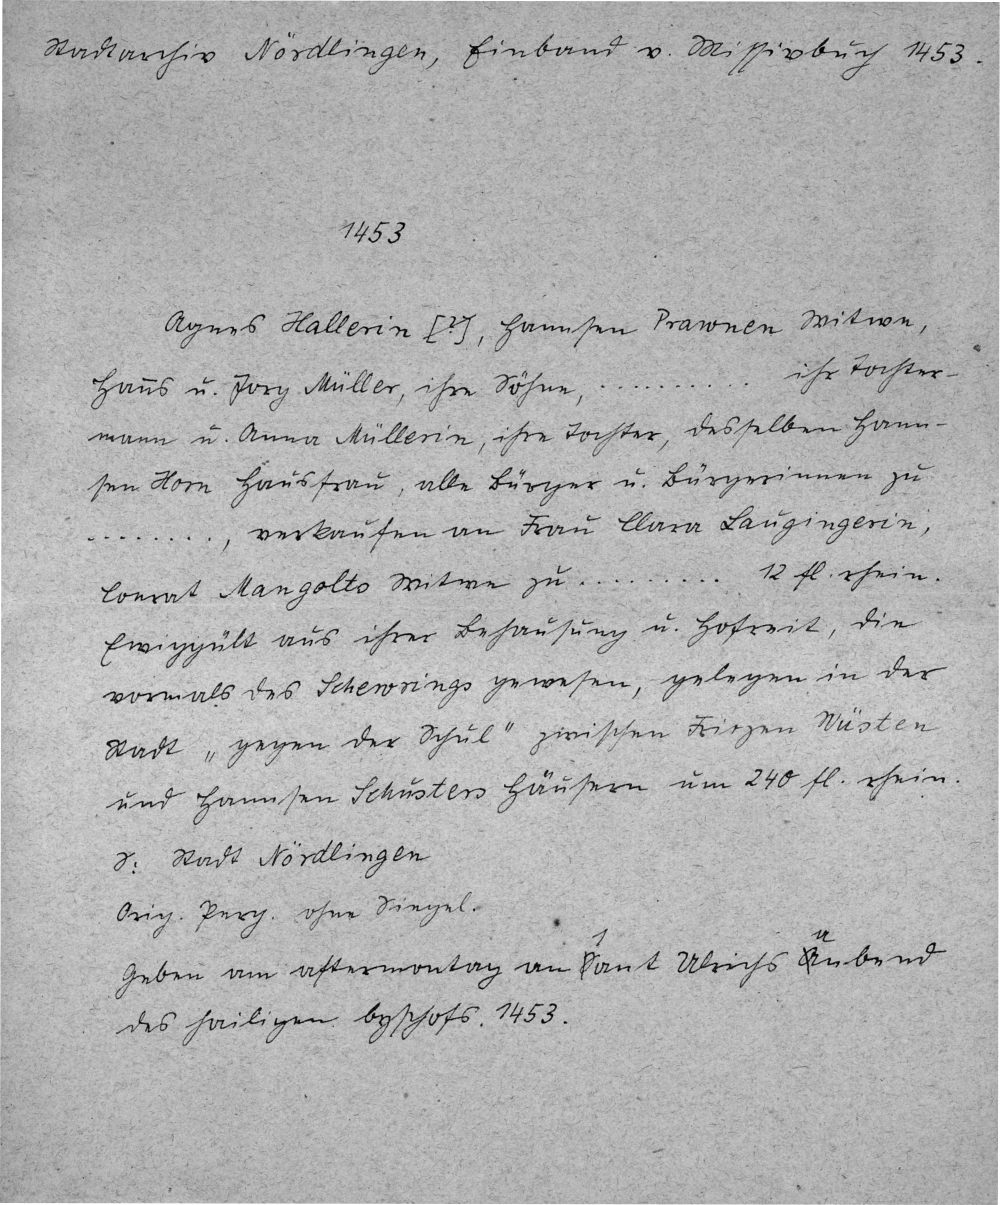 Stadtarchiv Nördlingen, Einband v. Missivbuch 1453.
1453
Agnes Hallerin [?], Hannsen Prawnen Witwe,
Hanns u. Jorg Müller, ihre Söhne, ........... ihr Tochter-
mann u. Anna Müllerin, ihre Tochter, desselben Hann-
sen Horn Hausfrau, alle Bürger u. Bürgerinnen zu
........, verkaufen an Frau Clara Laugingerin,
Conrat Mangolts Witwe zu ......... 12 fl. rhein.
Ewiggült aus ihrer Behausung u. Hofreit, die
vormals des Schewrings gewesen, gelegen in der
Stadt „gegen der Schul" zwischen Fritzen Wüsten
und Hannsen Schusters Häusern um 240 fl. rhein.
S: Stadt Nördlingen
Orig. Perg. ohne Siegel.
Geben am aftermontag an sant Ulrichs aubend
des hailigen byschofs. 1453.